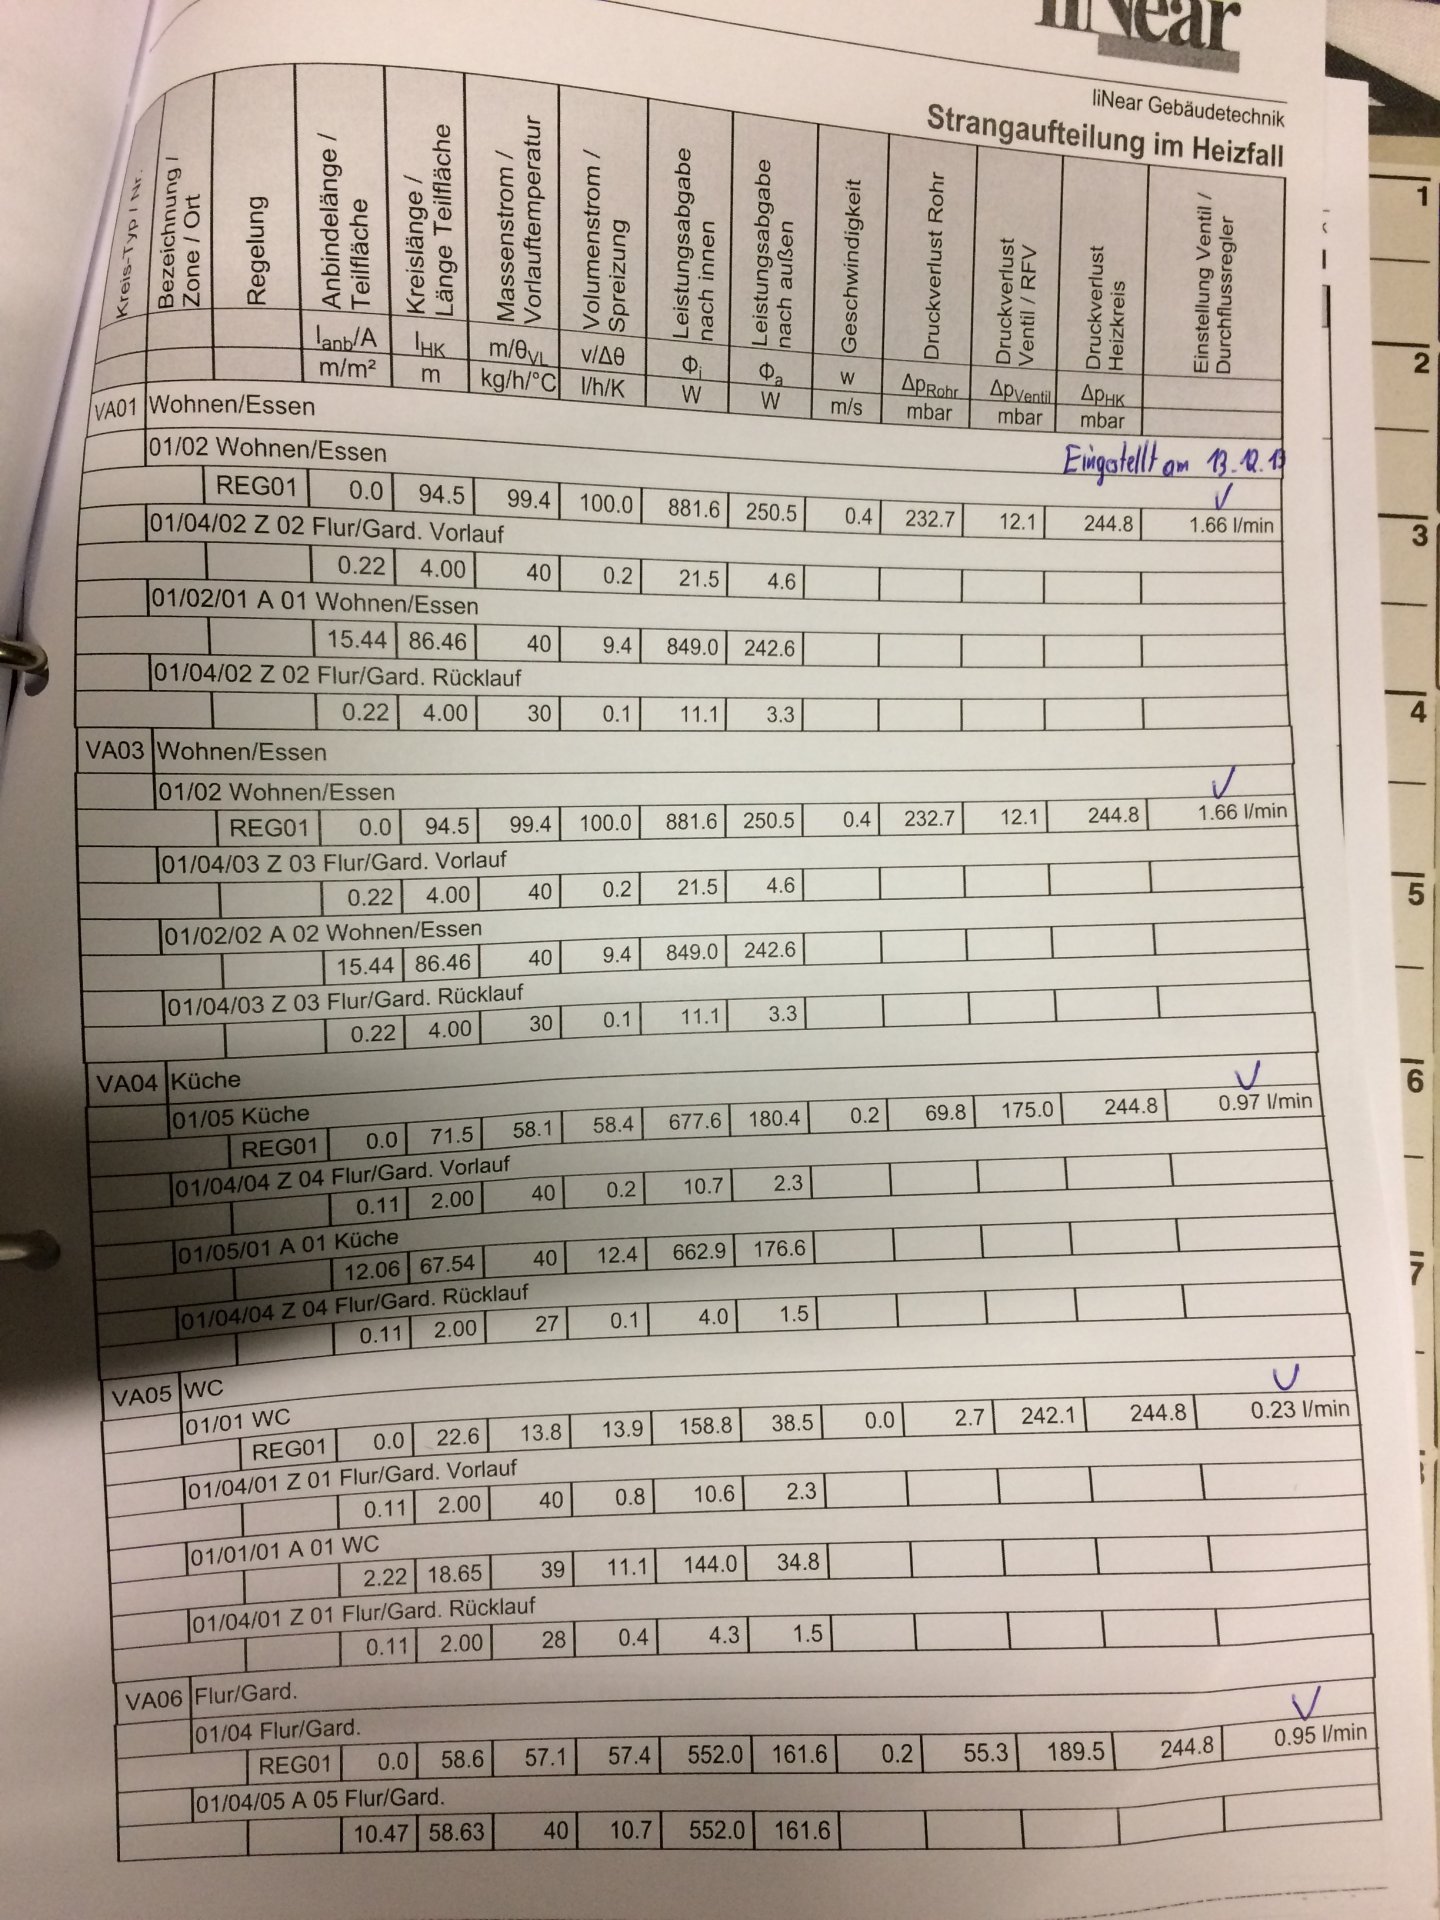 liNear
liNear Gebäudetechnik
Strangaufteilung im Heizfall
Kreis-Typ / Nr.
Bezeichnung / Zone / Ort
Regelung
Anbindelänge / Teilfläche
Kreislänge / Länge Teilfläche
Massenstrom / Vorlauftemperatur
Volumenstrom / Spreizung
Leistungsabgabe nach innen
Leistungsabgabe nach außen
Geschwindigkeit
Druckverlust Rohr
Druckverlust Ventil / RFV
Druckverlust Heizkreis
Einstellung Ventil / Durchflussregler
lanb/A lHK m/θVL v/Δθ Φi Φa w ΔpRohr ΔpVentil ΔpHK
m/m² m kg/h/°C l/h/K W W m/s mbar mbar mbar
VA01 Wohnen/Essen
01/02 Wohnen/Essen
Eingestellt am 13.12.13
REG01 0.0 94.5 99.4 100.0 881.6 250.5 0.4 232.7 12.1 244.8 1.66 l/min
01/04/02 Z 02 Flur/Gard. Vorlauf
0.22 4.00 40 0.2 21.5 4.6
01/02/01 A 01 Wohnen/Essen
15.44 86.46 40 9.4 849.0 242.6
01/04/02 Z 02 Flur/Gard. Rücklauf
0.22 4.00 30 0.1 11.1 3.3
VA03 Wohnen/Essen
01/02 Wohnen/Essen
REG01 0.0 94.5 99.4 100.0 881.6 250.5 0.4 232.7 12.1 244.8 1.66 l/min
01/04/03 Z 03 Flur/Gard. Vorlauf
0.22 4.00 40 0.2 21.5 4.6
01/02/02 A 02 Wohnen/Essen
15.44 86.46 40 9.4 849.0 242.6
01/04/03 Z 03 Flur/Gard. Rücklauf
0.22 4.00 30 0.1 11.1 3.3
VA04 Küche
01/05 Küche
REG01 0.0 71.5 58.1 58.4 677.6 180.4 0.2 69.8 175.0 244.8 0.97 l/min
01/04/04 Z 04 Flur/Gard. Vorlauf
0.11 2.00 40 0.2 10.7 2.3
01/05/01 A 01 Küche
12.06 67.54 40 12.4 662.9 176.6
01/04/04 Z 04 Flur/Gard. Rücklauf
0.11 2.00 27 0.1 4.0 1.5
VA05 WC
01/01 WC
REG01 0.0 22.6 13.8 13.9 158.8 38.5 0.0 2.7 242.1 244.8 0.23 l/min
01/04/01 Z 01 Flur/Gard. Vorlauf
0.11 2.00 40 0.8 10.6 2.3
01/01/01 A 01 WC
2.22 18.65 39 11.1 144.0 34.8
01/04/01 Z 01 Flur/Gard. Rücklauf
0.11 2.00 28 0.4 4.3 1.5
VA06 Flur/Gard.
01/04 Flur/Gard.
REG01 0.0 58.6 57.1 57.4 552.0 161.6 0.2 55.3 189.5 244.8 0.95 l/min
01/04/05 A 05 Flur/Gard.
10.47 58.63 40 10.7 552.0 161.6
1
2
3
4
5
6
7